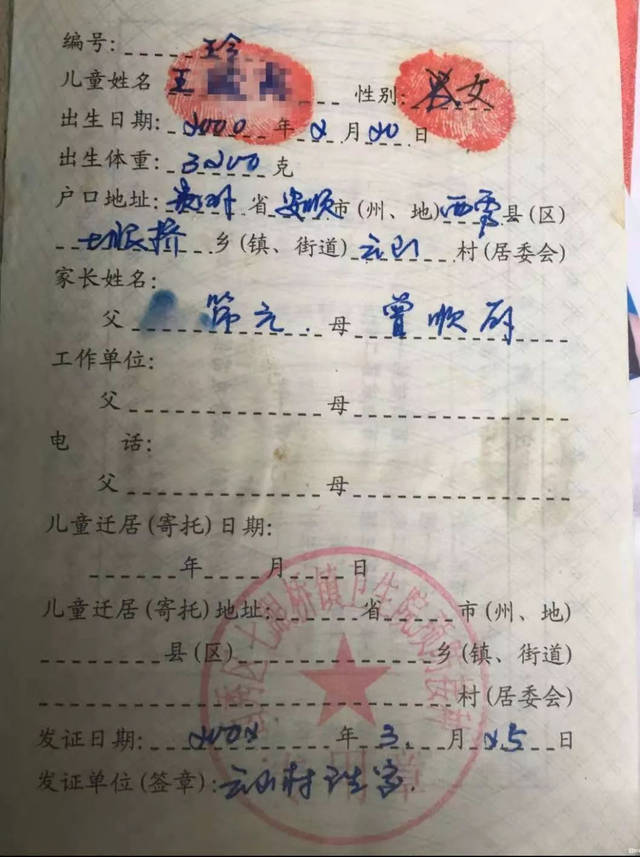 编号: 王玲
儿童姓名 王 性别: 女
出生日期: 2000年2月20日
出生体重: 3200克
户口地址: 贵州省安顺市(州、地)西秀县(区)
七眼桥乡(镇、街道)云山村(居委会)
家长姓名:
父 母 曾顺
工作单位:
父 母
电 话:
父 母
儿童迁居(寄托)日期:
年 月 日
儿童迁居(寄托)地址: 省 市(州、地)
县(区) 乡(镇、街道)
村(居委会)
发证日期: 2002年3.月25日
发证单位(签章): 云山村
七眼桥镇卫生院预防